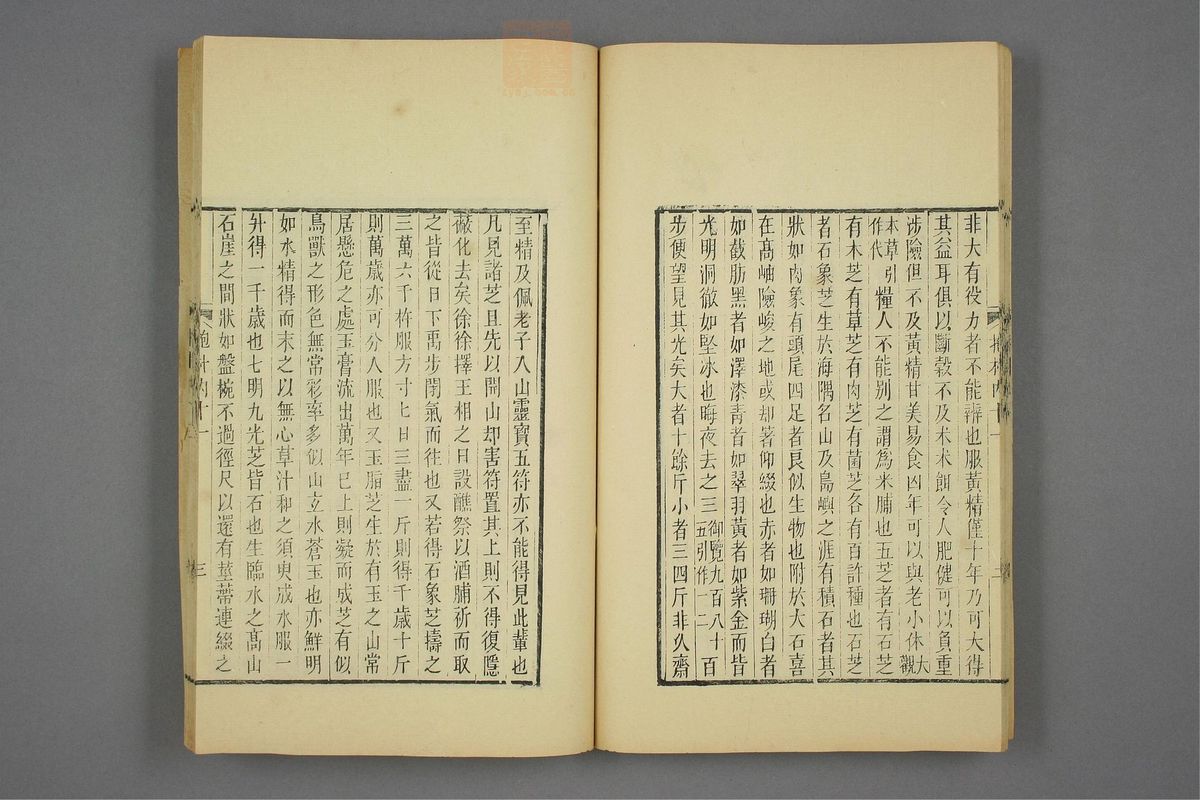 非大有役力者不能辨也服黃精僅十年乃可大得
其益耳俱以斷穀不及朮朮餌令人肥健可以負重
涉險但不及黃精甘美易食凶年可以與老小休大觀
本草引作代糧人不能別之謂爲米脯也五芝者有石芝
有木芝有草芝有肉芝有菌芝各有百許種也石芝
者石象芝生於海隅名山及島嶼之涯有積石者其
狀如肉象有頭尾四足者良似生物也附於大石喜
在高岫險峻之地或却著仰綴也赤者如珊瑚白者
如截肪黑者如澤漆青者如翠羽黃者如紫金而皆
光明洞徹如堅冰也晦夜去之三御覽九百八十五引作一二百
步便望見其光矣大者十餘斤小者三四斤非久齋
至精及佩老子入山靈寶五符亦不能得見此輩也
凡見諸芝且先以開山却害符置其上則不得復隱
蔽化去矣徐徐擇王相之日設醮祭以酒脯祈而取
之皆從日下禹步閉氣而往也又若得石象芝擣之
三萬六千杵服方寸匕日三盡一斤則得千歲十斤
則萬歲亦可分人服也又玉脂芝生於有玉之山常
居懸危之處玉膏流出萬年已上則凝而成芝有似
鳥獸之形色無常彩率多似山玄水蒼玉也亦鮮明
如水精得而末之以無心草汁和之須臾成水服一
升得一千歲也七明九光芝皆石也生臨水之高山
石崖之間狀如盤椀不過徑尺以還有莖蔕連綴之
抱朴內十一
三